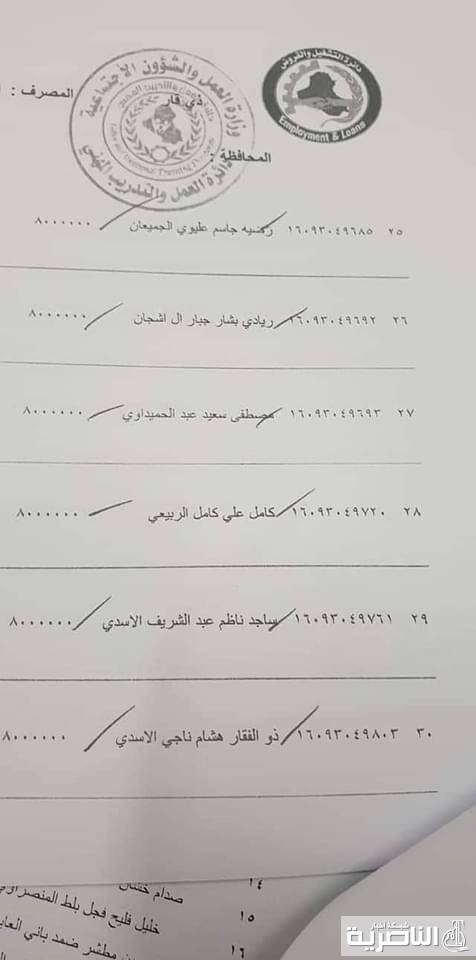 دائرة التشغيل والقروض
Employment & Loans
وزارة العمل والشؤون الاجتماعية
دائرة العمل والتدريب المهني
المصرف :
ذي قار
المحافظة :
٢٥ ١٦٠٩٣٠٤٩٦٨٥ رضيه جاسم عليوي الجميعان ٨٠٠٠٠٠٠
٢٦ ١٦٠٩٣٠٤٩٦٩٢ ريادي بشار جبار ال اشجان ٨٠٠٠٠٠٠
٢٧ ١٦٠٩٣٠٤٩٦٩٣ مصطفى سعيد عبد الحميداوي ٨٠٠٠٠٠٠
٢٨ ١٦٠٩٣٠٤٩٧٢٠ كامل علي كامل الربيعي ٨٠٠٠٠٠٠
٢٩ ١٦٠٩٣٠٤٩٧٦١ ساجد ناظم عبد الشريف الاسدي ٨٠٠٠٠٠٠
٣٠ ١٦٠٩٣٠٤٩٨٠٣ ذو الفقار هشام ناجي الاسدي ٨٠٠٠٠٠٠
١٤ صدام
١٥ خليل فليح فجل بلط المنصراوي
١٦ مطشر ضمد باني
شبكة أخبار
الناصرية